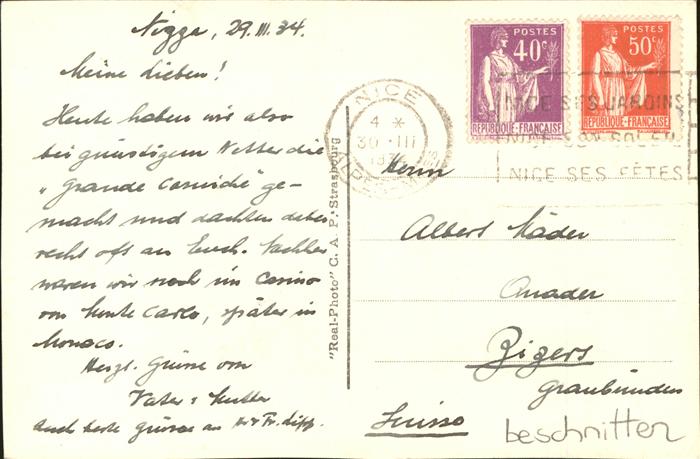 Nizza, 29.III.34.
Meine Lieben!
Heute haben wir also
bei günstigem Wetter die
„Grande Corniche" ge-
macht und dachten dabei
recht oft an Euch. Nachher
waren wir noch im Casino
von Monte Carlo, später in
Monaco.
Herzl. Grüsse von
Vater & Mutter
auch beste Grüsse an Hr & Fr.
"Real-Photo" C. A. P. Strasbourg
POSTES
40c
REPUBLIQUE-FRANÇAISE
POSTES
50c
REPUBLIQUE-FRANÇAISE
NICE
4 *
30 III
NICE SES JARDINS
NICE SON SOLEIL
NICE SES FÊTES
Herrn
Albert Mäder
Zizers
Graubünden
Suisse
beschnitten